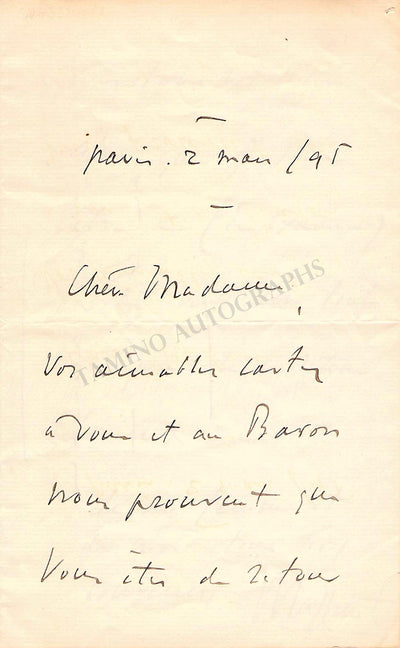 Paris. 2 mars /95
Chère Madame,
TAMINO AUTOGRAPHS
Vos aimables cartes
à vous et au Baron
nous prouvent que
vous êtes de retour